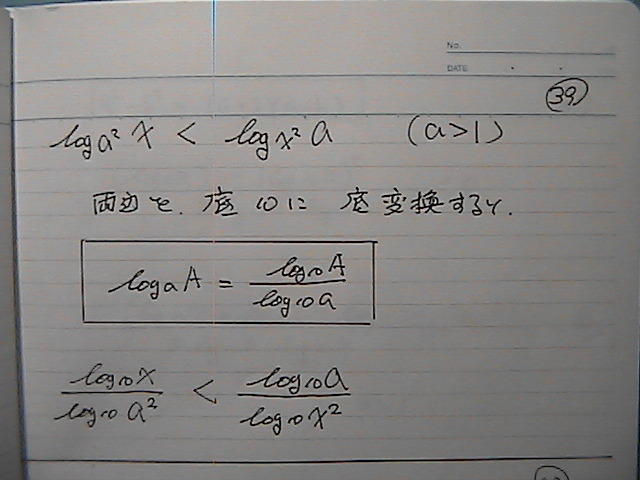 No.
DATE
39
log a² x < log x² a (a>1)
両辺を、底10に 底変換すると、
log a A = log10 A / log10 a
log10 x / log10 a² < log10 a / log10 x²